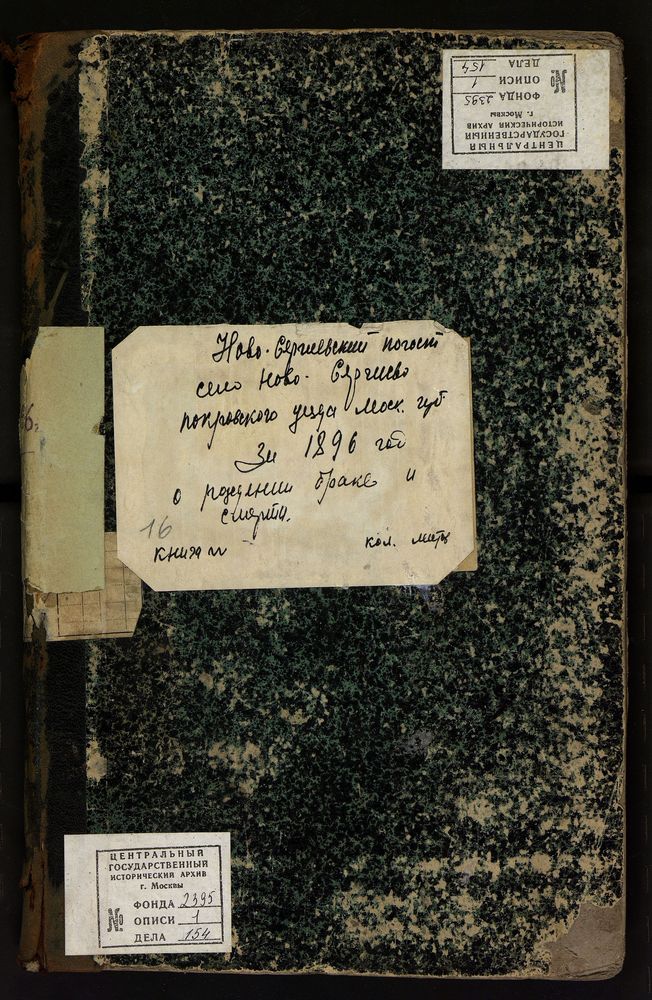 ЦЕНТРАЛЬНЫЙ
ГОСУДАРСТВЕННЫЙ
ИСТОРИЧЕСКИЙ АРХИВ
г. Москвы
№
ФОНДА 2395
ОПИСИ 1
ДЕЛА 154
Ново-Сергиевский погост
село Ново-Сергиево
покровского уезда Моск. губ
За 1896 год
о рождении браке и
смерти.
16
книга
кол. лист
6
ЦЕНТРАЛЬНЫЙ
ГОСУДАРСТВЕННЫЙ
ИСТОРИЧЕСКИЙ АРХИВ
г. Москвы
№
ФОНДА 2395
ОПИСИ 1
ДЕЛА 154